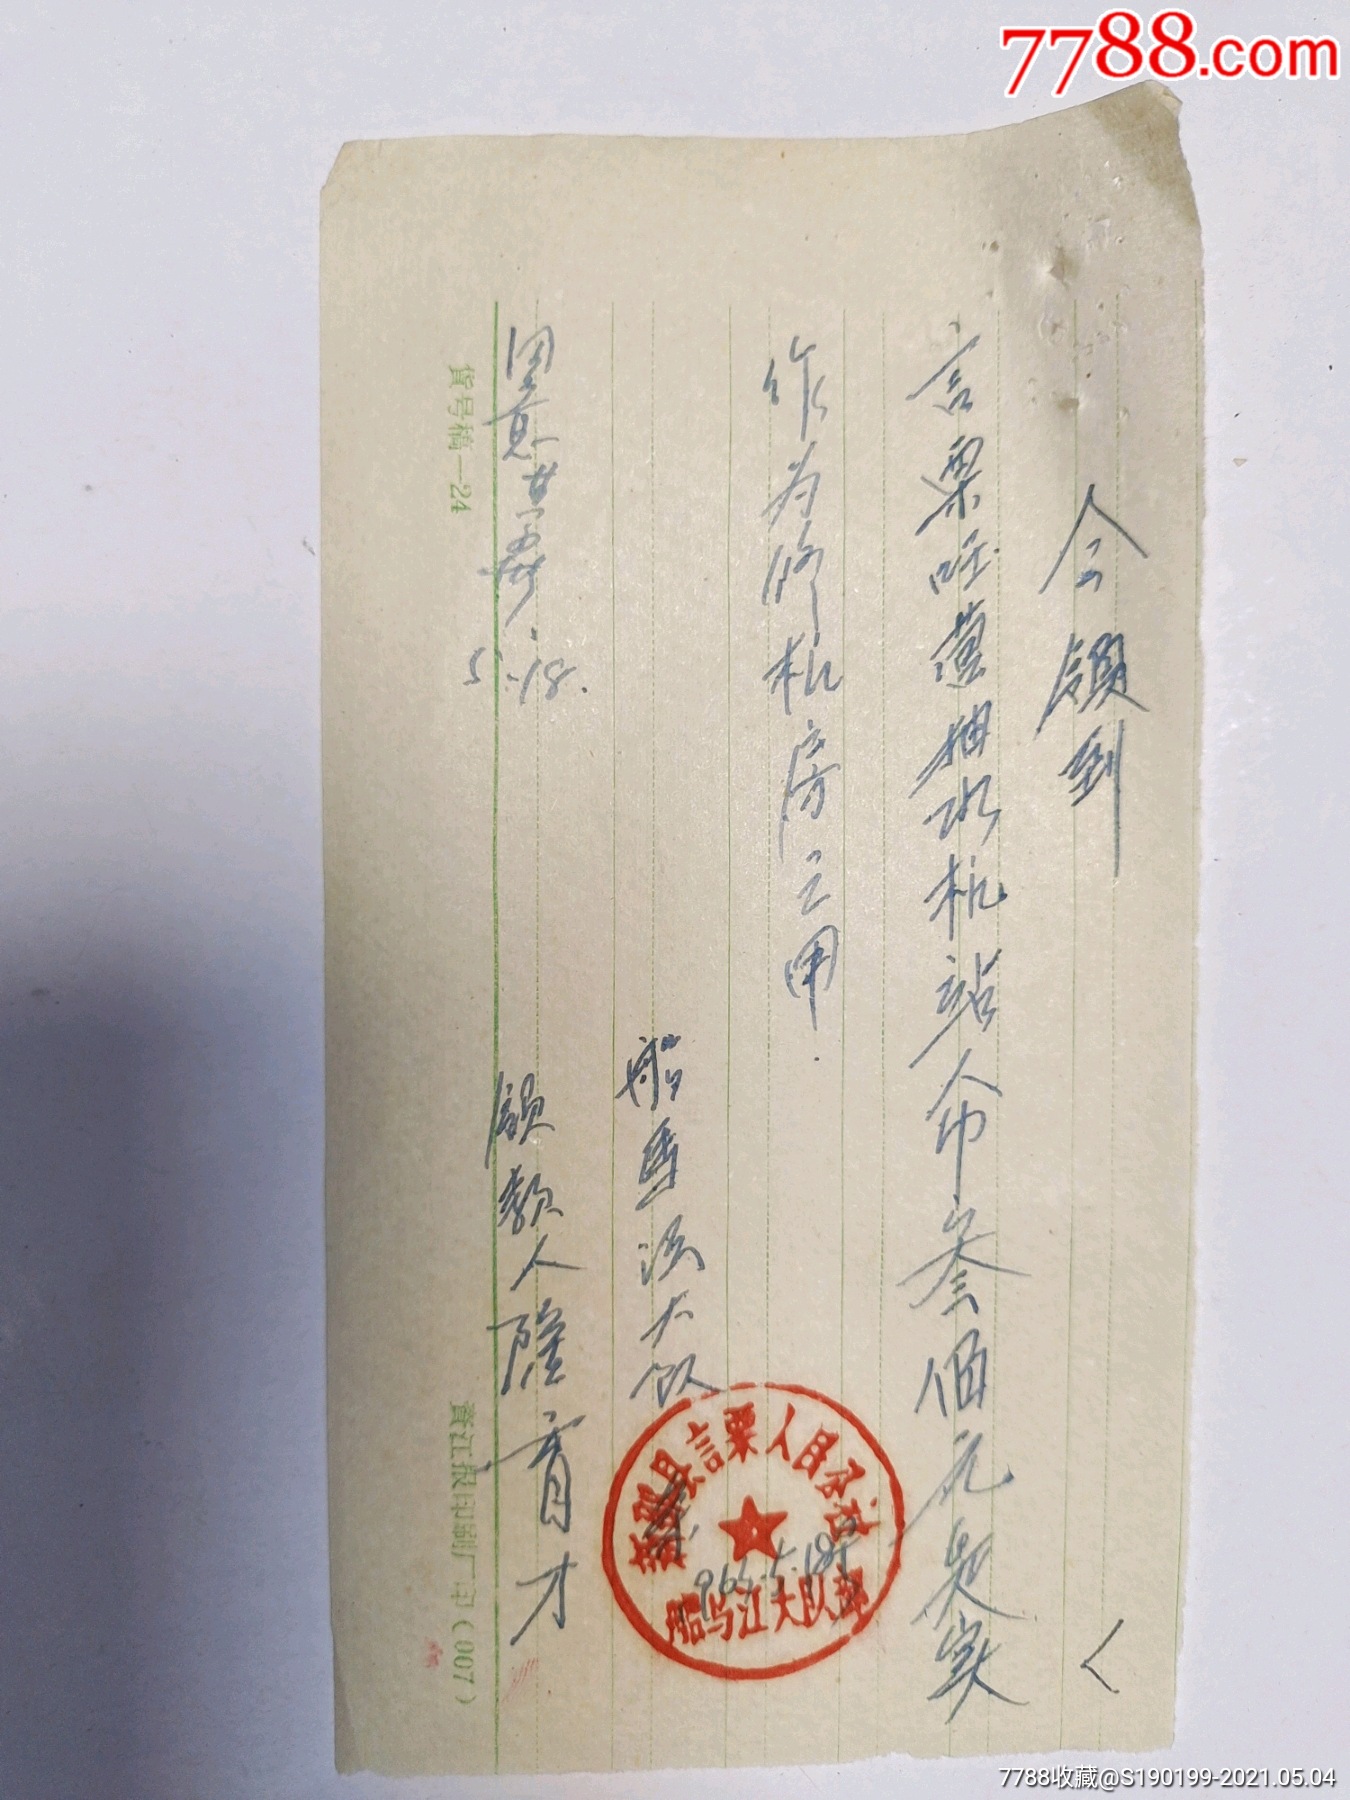 7788.com
今领到
言粟旺萱抽水机站人币叁佰元是实
作为修机房之用.
船马江大队
领款人 隆育才
同意
5.18.
言粟人民公社
船马江大队部
资号稿—24
资江报印刷厂印(007)
7788收藏@S190199-2021.05.04